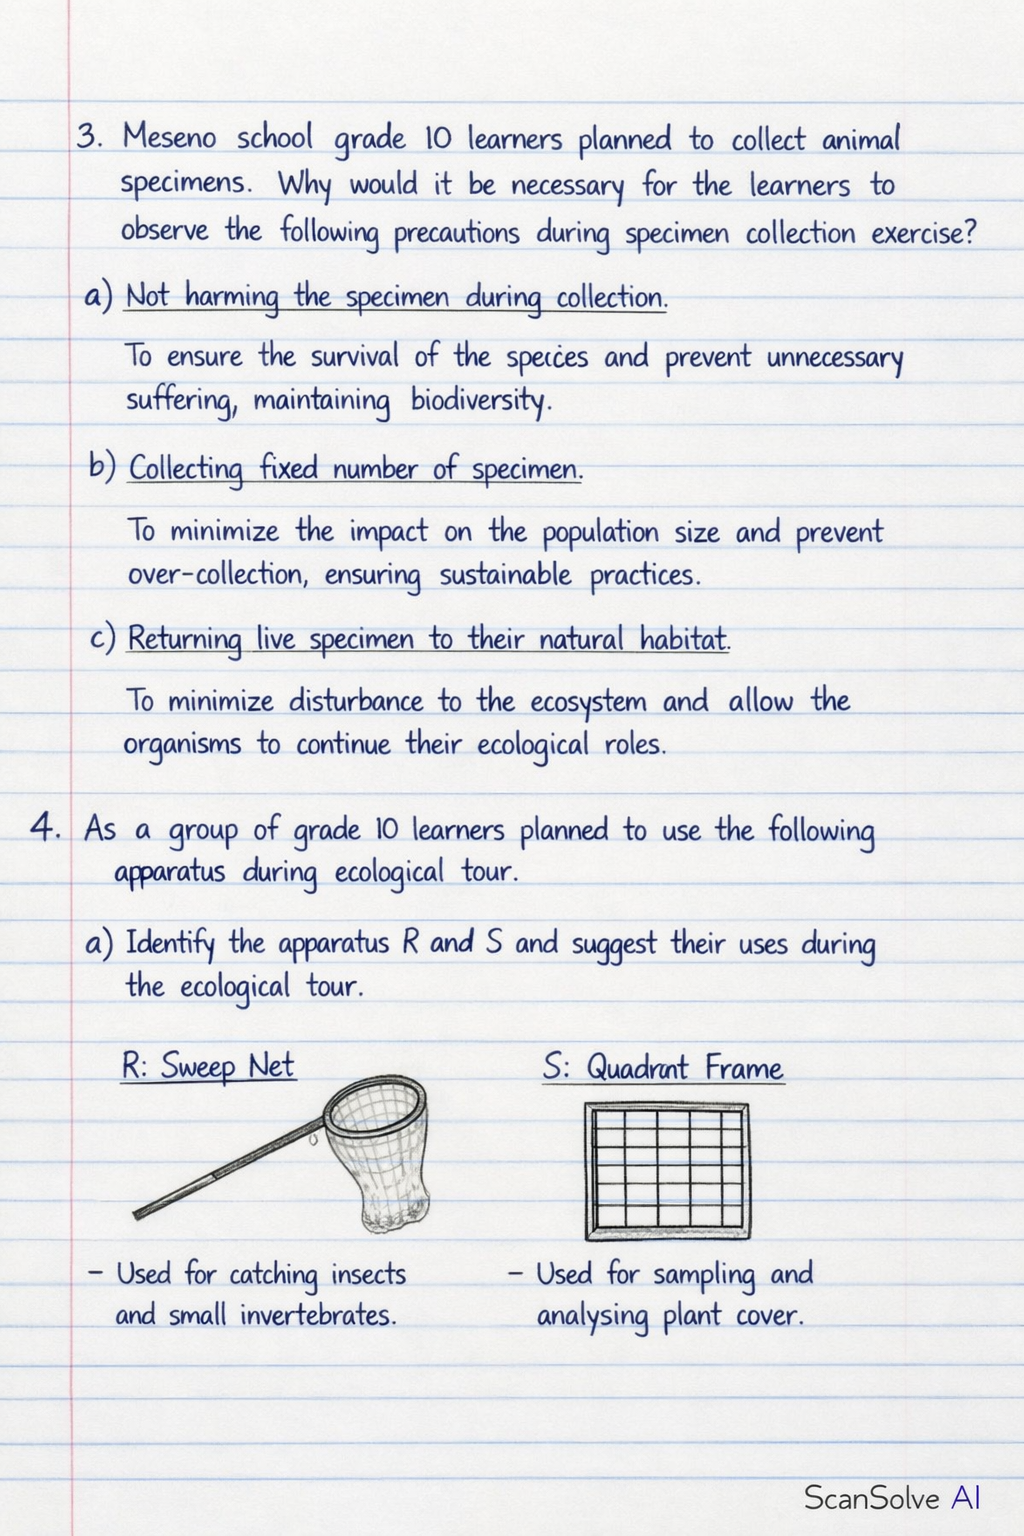 3. Meseno school grade 10 learners planned to collect animal
specimens. Why would it be necessary for the learners to
observe the following precautions during specimen collection exercise?
a) Not harming the specimen during collection.
To ensure the survival of the species and prevent unnecessary
suffering, maintaining biodiversity.
b) Collecting fixed number of specimen.
To minimize the impact on the population size and prevent
over-collection, ensuring sustainable practices.
c) Returning live specimen to their natural habitat.
To minimize disturbance to the ecosystem and allow the
organisms to continue their ecological roles.
4. As a group of grade 10 learners planned to use the following
apparatus during ecological tour.
a) Identify the apparatus R and S and suggest their uses during
the ecological tour.
R: Sweep Net
S: Quadrant Frame
- Used for catching insects
and small invertebrates.
- Used for sampling and
analysing plant cover.
ScanSolve AI